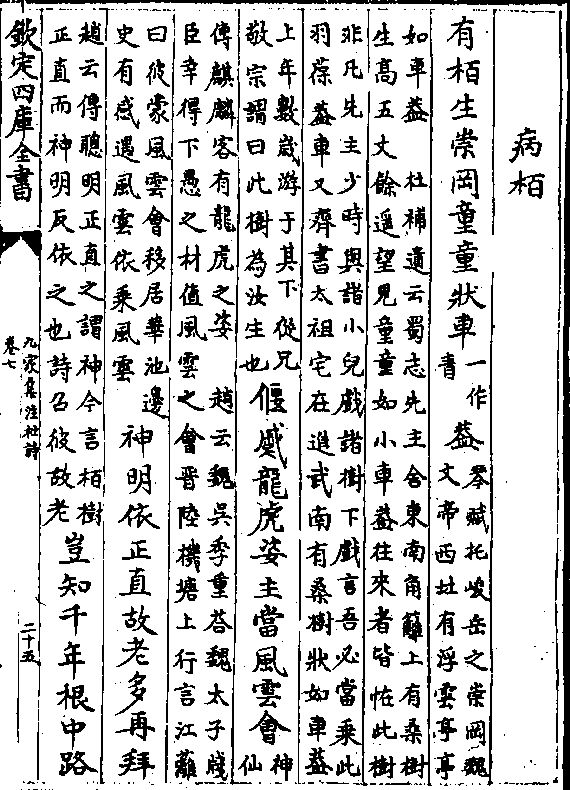 病栢
有栢生崇岡童童狀車一作青蓋琴賦托峻岳之崇岡魏文帝西北有浮雲亭亭
如車蓋　杜補遺云蜀志先主舍東南角籬上有桑樹
生高五丈餘遥望見童童如小車蓋往來者皆怪此樹
非凡先主少時與諸小兒戲諸樹下戲言吾必當乘此
羽葆蓋車又齊書太祖宅在進武南有桑樹狀如車蓋
上年數歲游于其下從兄敬宗謂曰此樹為汝生也偃蹙龍虎姿主當風雲會神仙
傳麒麟客有龍虎之姿　趙云魏吳季重荅魏太子牋
臣幸得下愚之材值風雲之會晉陸機塘上行言江蘺
曰彼蒙風雲會移居華池邊史有感遇風雲依乘風雲神明依正直故老多再拜
趙云傳聰明正直之謂神今言栢樹正直而神明反依之也詩召彼故老豈知千年根中路
欽定四庫全書
九家集注杜詩
卷七
二十五